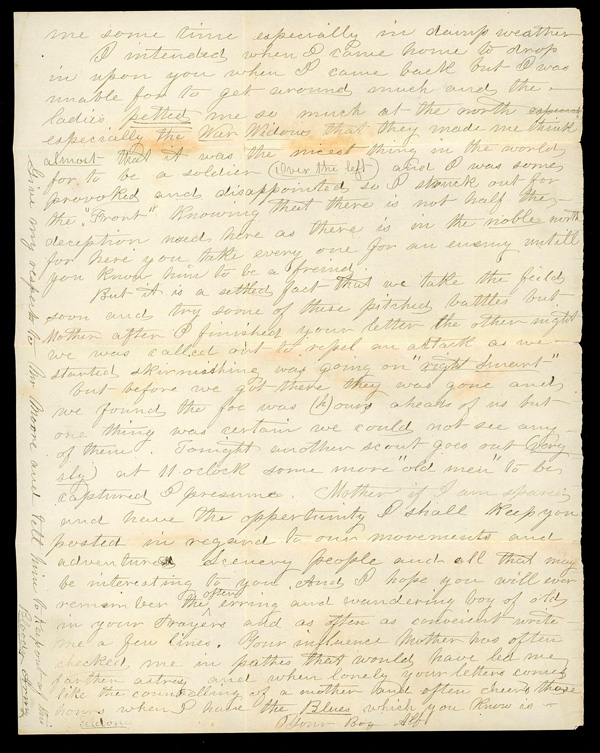 me some time especially in damp weather
I intended when I came home to drop
in upon you when I came back but I was
unable for to get around much and the
ladies petted me so much at the north
especially the War Widows that they made me think
almost that it was the nicest thing in the world
for to be a soldier (Over the left) and I was some
provoked and disappointed so I struck out for
the "Front" Knowing that there is not half the
deception used here as there is in the noble north
for here you take every one for an enemy untill
you know him to be a freind.
But it is a settled fact that we take the field
soon and try some of these pitched battles but
Mother after I finished your letter the other night
we was called out to repel an attack as we
started skirmisshing was going on "right smart"
but before we got there they was gone and
we found the foe was (h)ours ahead of us but
one thing was certain we could not see any
of them. Tonight another scout goes out (very
sly) at 11 oclock some more "old men" to be
captured I presume. Mother if I am spared
and have the opportunity I shall keep you
posted in regard to our movements and
adventures Scenery people and all that may
be interesting to you. And I hope you will ever
often
remember the erring and wandering boy of old
in your Prayers and as often as convenient write
me a few lines. Your influence Mother has often
checked me in pathes that would have led me
farther astray and when lonely your letters comes
like the councelling of a mother and often cheers those
hours when I have the Blues which you know is
seldom Your Boy Alf
Give my respects to Mr Moore and tell him to